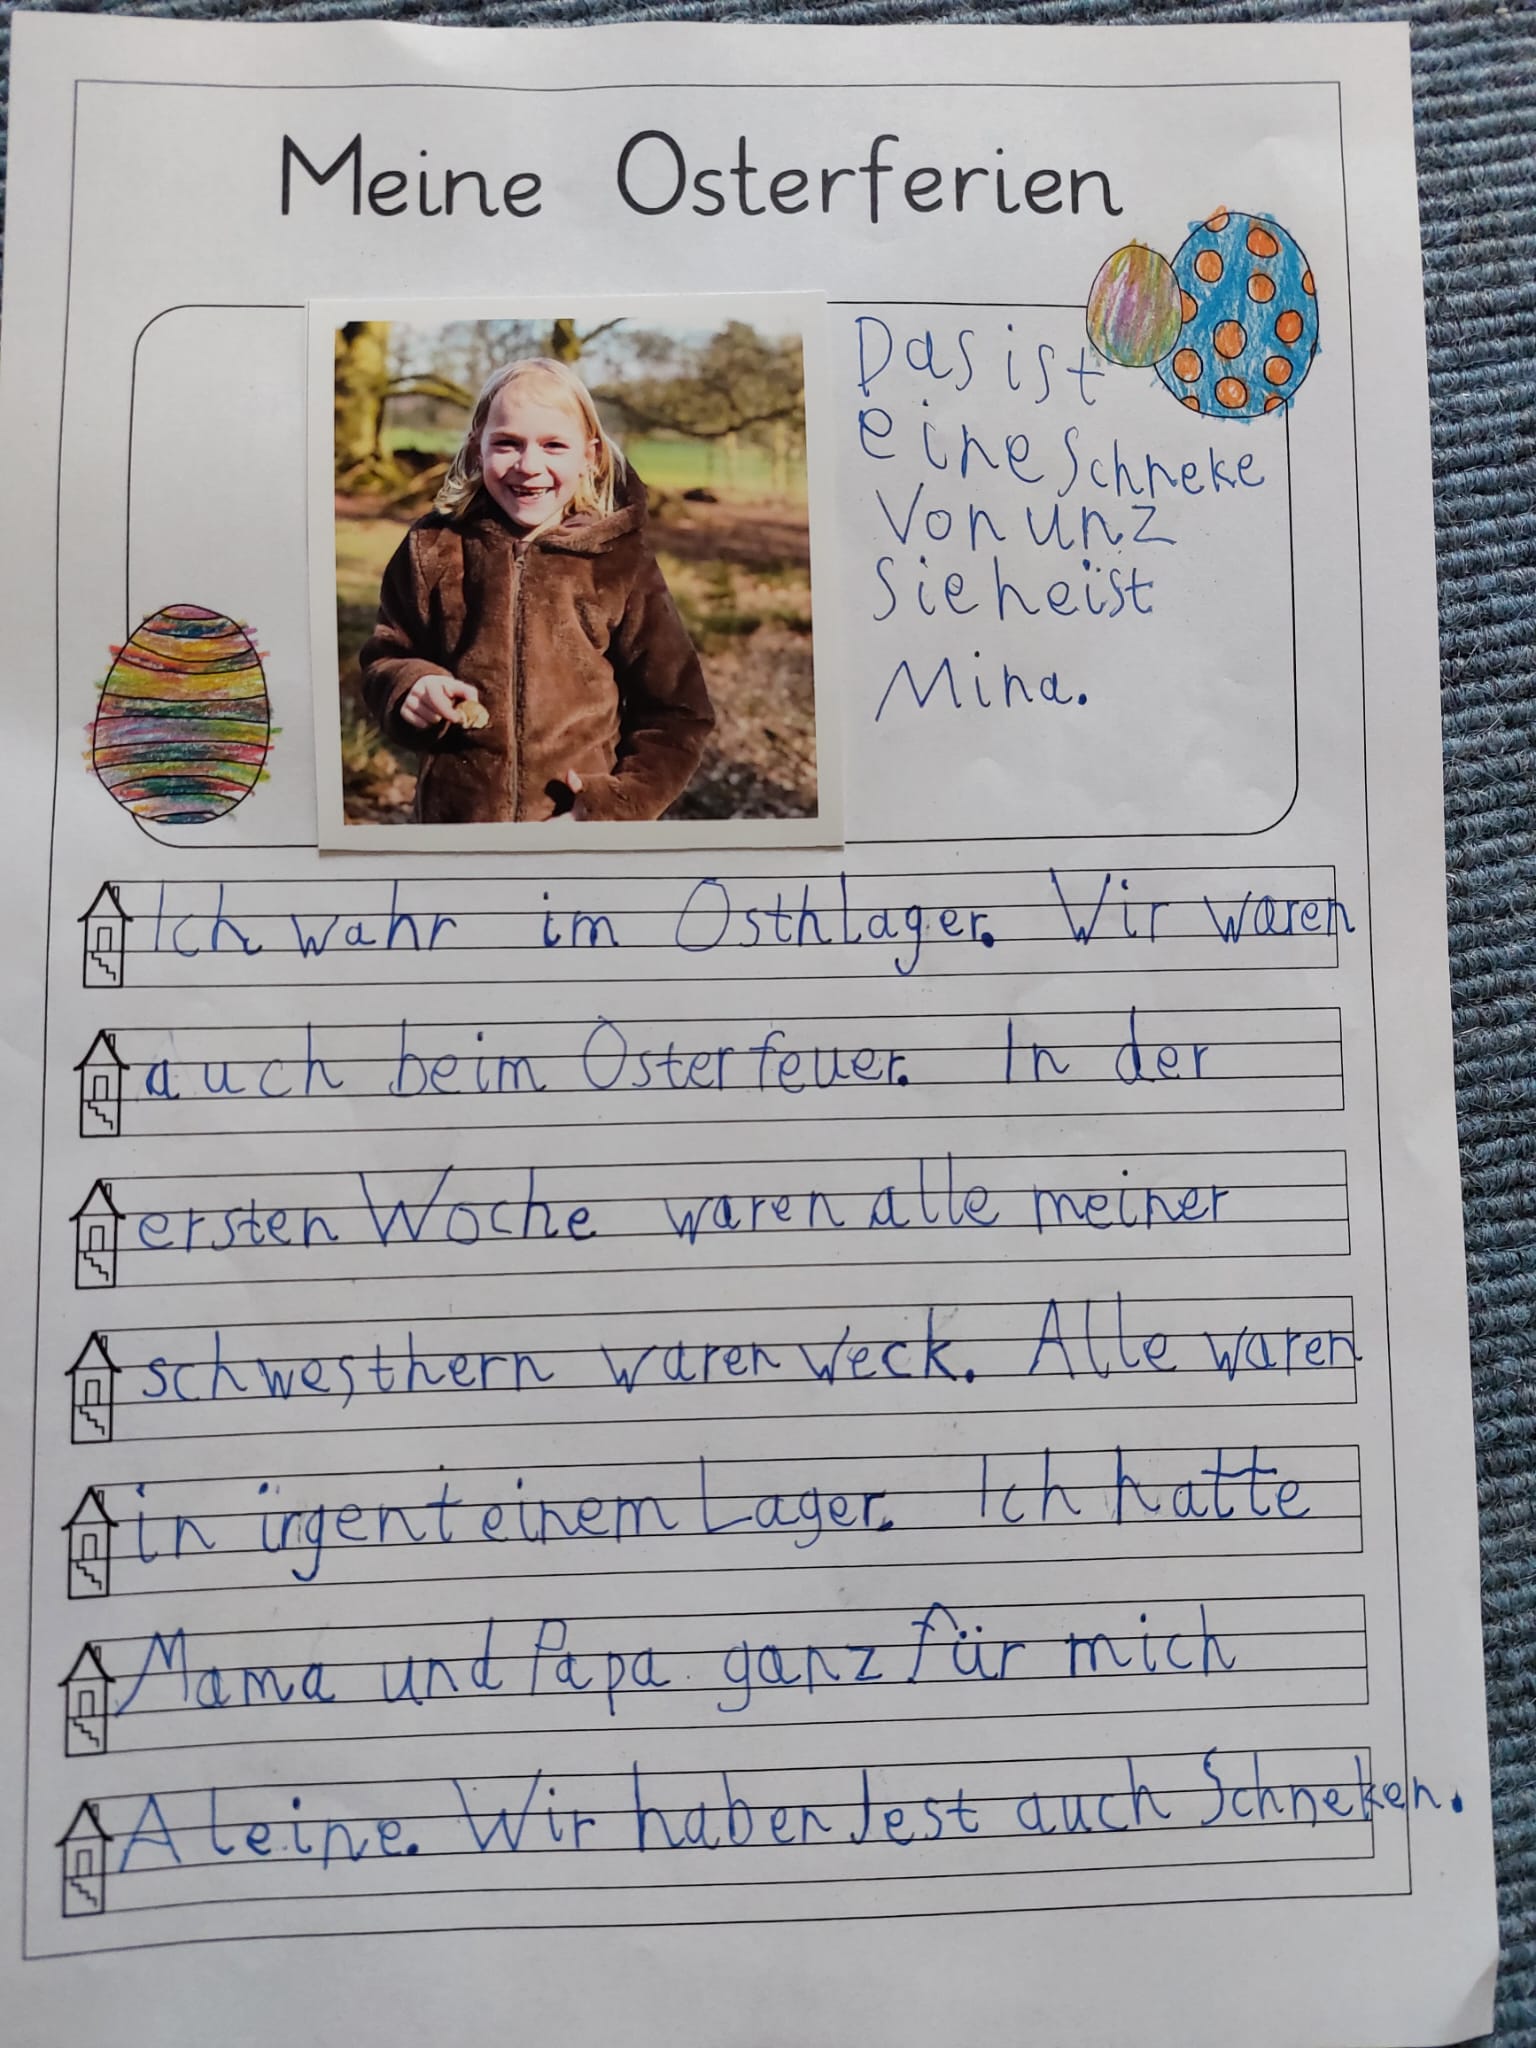 Meine Osterferien
Das ist
eine Schneke
Von unz
Sie heist
Mina.
Ich wahr im Osthlager. Wir waren
auch beim Osterfeuer. In der
ersten Woche waren alle meiner
schwesthern waren Weck. Alle waren
in irgent einem Lager. Ich hatte
Mama und Papa ganz für mich
Aleine. Wir haben Jest auch Schneken.